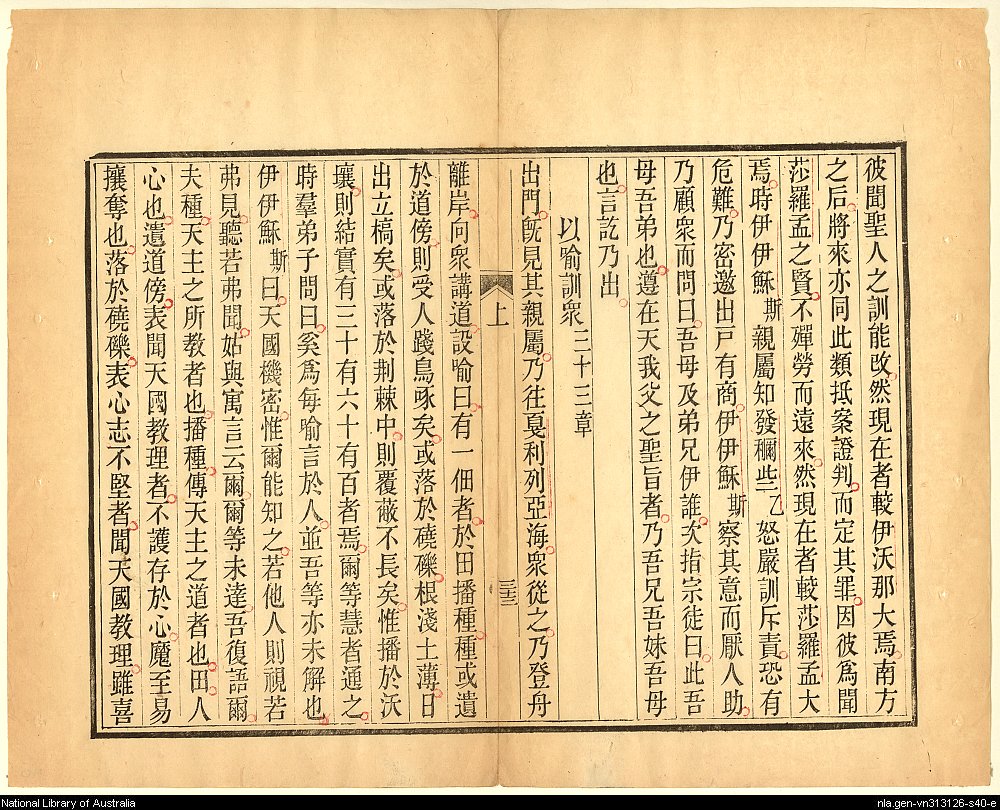 彼聞聖人之訓能改然現在者較伊沃那大焉南方
之后將來亦同此類抵案證判而定其罪因彼為聞
莎羅孟之賢不殫勞而遠來然現在者較莎羅孟大
焉時伊伊穌斯親屬知發穪些乙怒嚴訓斥責恐有
危難乃密邀出戸有商伊伊穌斯察其意而厭人助
乃顧衆而問曰吾母及弟兄伊誰次指宗徒曰此吾
母吾弟也遵在天我父之聖旨者乃吾兄吾妹吾母
也言訖乃出
以喻訓衆三十三章
出門旣見其親屬乃往戛利列亞海衆從之乃登舟
上
三十三
離岸向衆講道設喻曰有一佃者於田播種種或遺
於道傍則受人踐鳥啄矣或落於磽礫根淺土薄日
出立槁矣或落於荆棘中則覆蔽不長矣惟播於沃
壤則結實有三十有六十有百者焉爾等慧者通之
時羣弟子問曰奚爲每喻言於人並吾等亦未解也
伊伊穌斯曰天國機密惟爾能知之若他人則視若
弗見聽若弗聞姑與寓言云爾爾等未達吾復語爾
夫種天主之所教者也播種傳天主之道者也田人
心也遺道傍表聞天國教理者不護存於心魔至易
攘奪也落於磽礫表心志不堅者聞天國教理雖喜
National Library of Australia
nla.gen-vn313126-s40-e